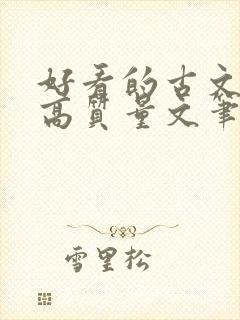 好看的古文
高质量文笔
雪里松